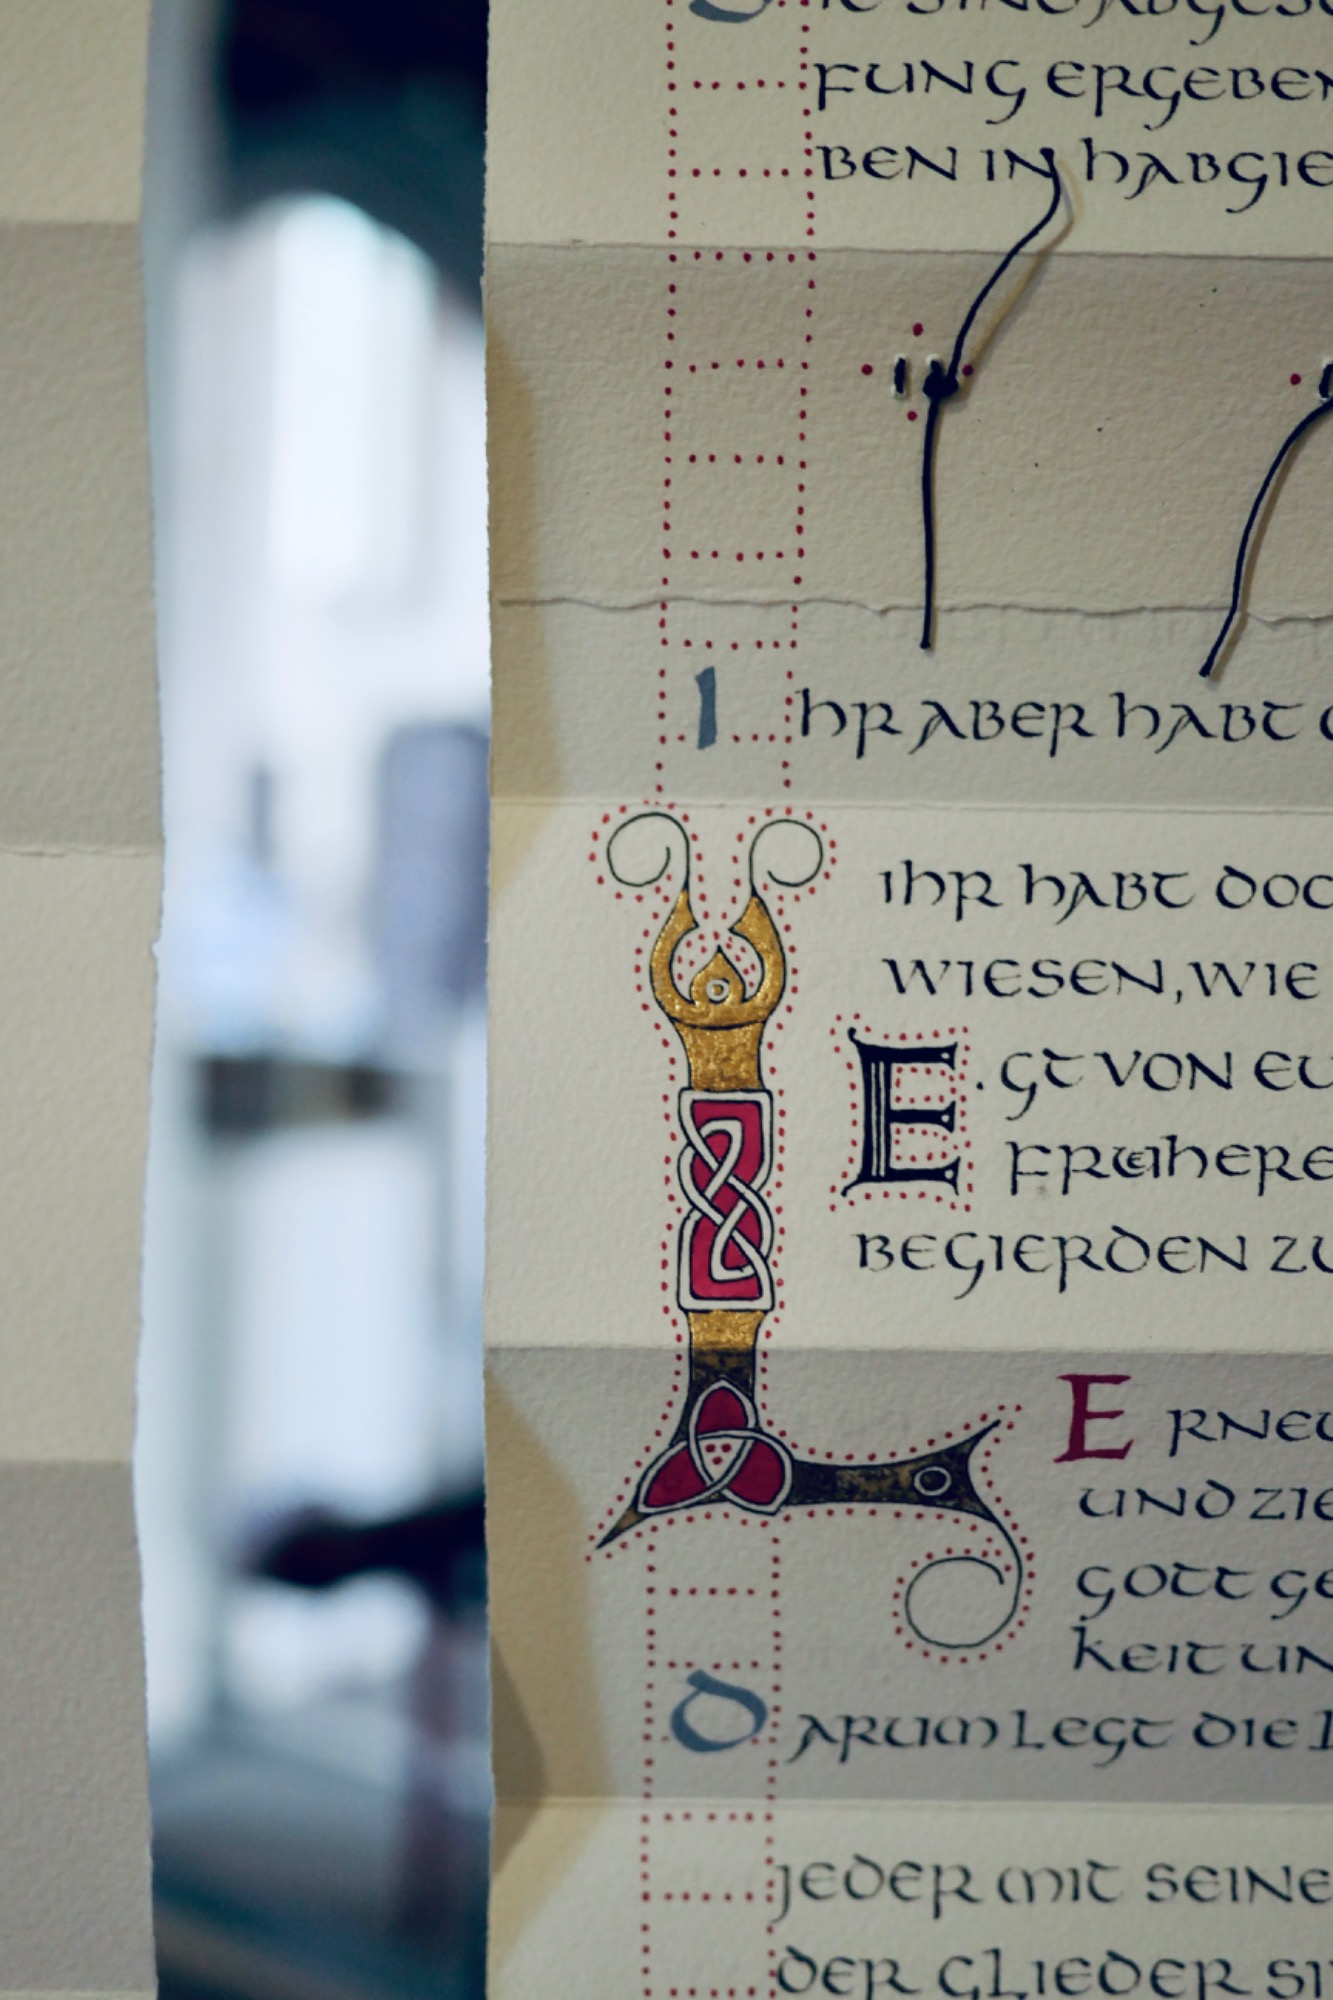 SIE SIND ABGES
FUNG ERGEBEN
BEN IN HABGIE
IHR ABER HABT
IHR HABT DOC
WIESEN, WIE
LE.GT VON EU
FRÜHERE
BEGIERDEN ZU
ERNEU
UND ZIE
GOTT GE
KEIT UN
DARUM LEGT DIE L
JEDER MIT SEINE
DER GLIEDER SI